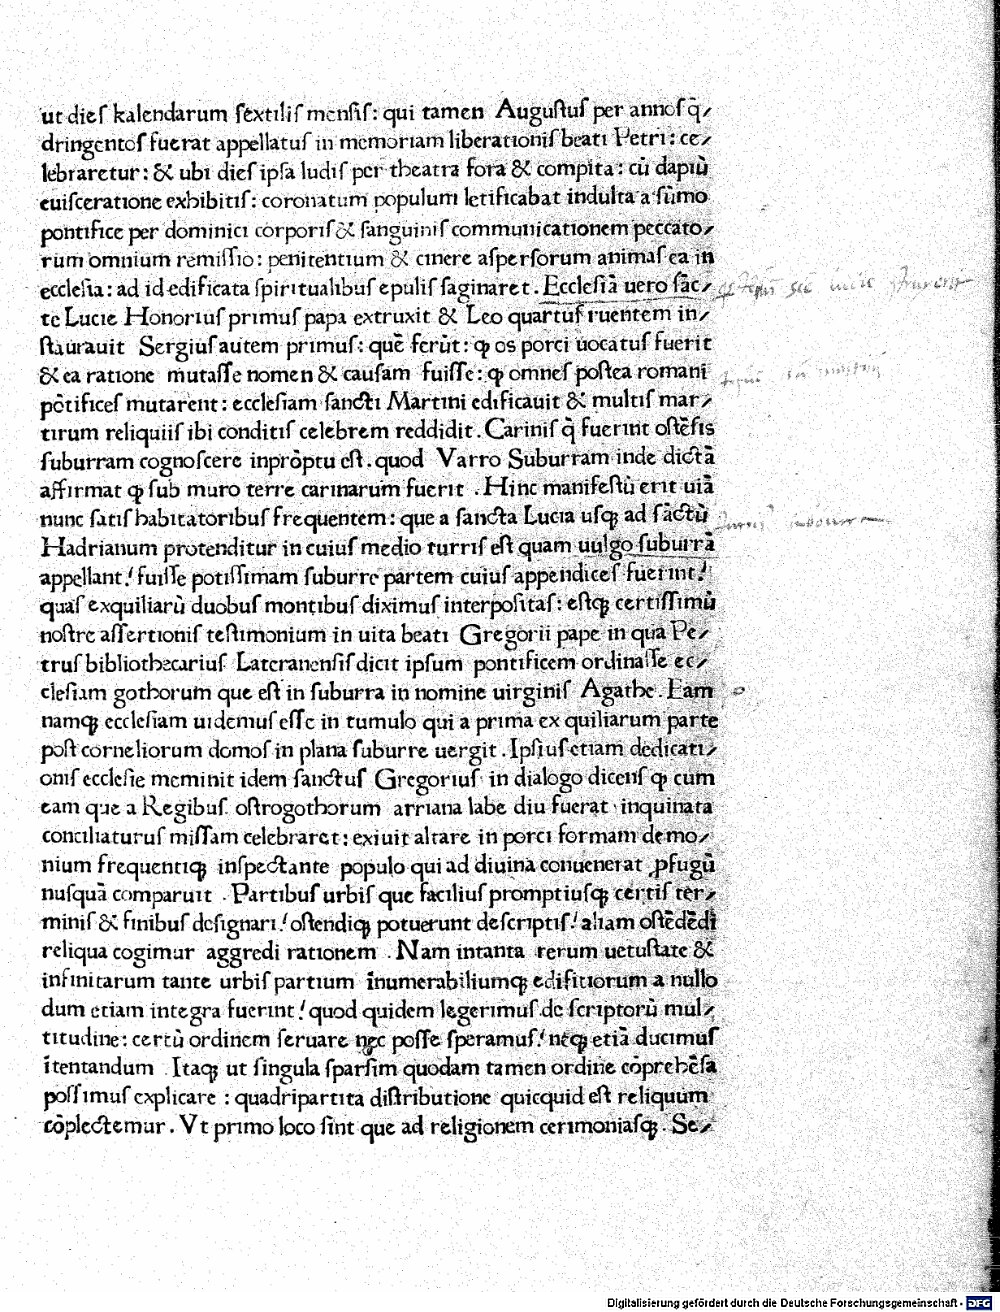 ut dieſ kalendarum ſextiliſ menſiſ: qui tamen Auguſtuſ per annoſ q̄⸗
dringentoſ fuerat appellatuſ in memoriam liberationiſ beati Petri: ce⸗
lebraretur: & ubi dieſ ipſa ludiſ per theatra fora & compita: cū dapiū
euiſceratione exhibitiſ: coronatum populum letificabat indulta a ſūmo
pontifice per dominici corporiſ & ſanguiniſ communicationem peccato⸗
rum omnium remiſſio: penitentium & cinere aſperſorum animaſ ea in
eccleſia: ad id edificata ſpiritualibuſ epuliſ ſaginaret. Eccleſiā uero ſāc⸗
te Lucie Honoriuſ primuſ papa extruxit & Leo quartuſ ruentem in⸗
ſtaurauit Sergiuſ autem primuſ: quē ferūt: ꝙ os porci uocatuſ fuerit
& ea ratione mutaſſe nomen & cauſam fuiſſe: ꝙ omneſ poſtea romani
pōtificeſ mutarent: eccleſiam ſancti Martini edificauit & multiſ mar⸗
tirum reliquiiſ ibi conditiſ celebrem reddidit. Cariniſ q̄ fuerint oſtēſis
ſuburram cognoſcere inprōptu eſt. quod Varro Suburram inde dictā
affirmat ꝙ ſub muro terre carinarum fuerit. Hinc manifeſtū erit uiā
nunc ſatiſ habitatoribuſ frequentem: que a ſancta Lucia uſqꝫ ad ſāctū
Hadrianum protenditur in cuiuſ medio turriſ eſt quam uulgo ſuburrā
appellant! fuiſſe potiſſimam ſuburre partem cuiuſ appendiceſ fuerint!
quaſ exquiliarū duobuſ montibuſ diximuſ interpoſitaſ: eſtqꝫ certiſſimū
noſtre aſſertioniſ teſtimonium in uita beati Gregorii pape in qua Pe⸗
truſ bibliothecariuſ Lateranenſiſ dicit ipſum pontificem ordinaſſe ec⸗
cleſiam gothorum que eſt in ſuburra in nomine uirginiſ Agathe. Eam
namqꝫ eccleſiam uidemuſ eſſe in tumulo qui a prima ex quiliarum parte
poſt corneliorum domoſ in plana ſuburre uergit. Ipſiuſ etiam dedicati⸗
oniſ eccleſie meminit idem ſanctuſ Gregoriuſ in dialogo dicenſ ꝙ cum
eam que a Regibuſ oſtrogothorum arriana labe diu fuerat inquinata
conciliaturuſ miſſam celebraret: exiuit altare in porci formam demo⸗
nium frequentiqꝫ inſpectante populo qui ad diuina conuenerat ꝓfugū
nuſquā comparuit. Partibuſ urbiſ que faciliuſ promptiuſqꝫ certiſ ter⸗
miniſ & finibuſ deſignari! oſtendiqꝫ potuerunt deſcriptiſ! aliam oſtēdēdi
reliqua cogimur aggredi rationem. Nam intanta rerum uetuſtate &
infinitarum tante urbiſ partium inumerabiliumqꝫ edifitiorum a nullo
dum etiam integra fuerint! quod quidem legerimuſ de ſcriptorū mul⸗
titudine: certū ordinem ſeruare nec poſſe ſperamuſ! neqꝫ etiā ducimuſ
ītentandum Itaqꝫ ut ſingula ſparſim quodam tamen ordine cōprehēſa
poſſimuſ explicare: quadripartita diſtributione quicquid eſt reliquum
cōplectemur. Vt primo loco ſint que ad religionem cerimoniaſqꝫ. Se⸗
Digitalisierung gefördert durch die Deutsche Forschungsgemeinschaft - DFG